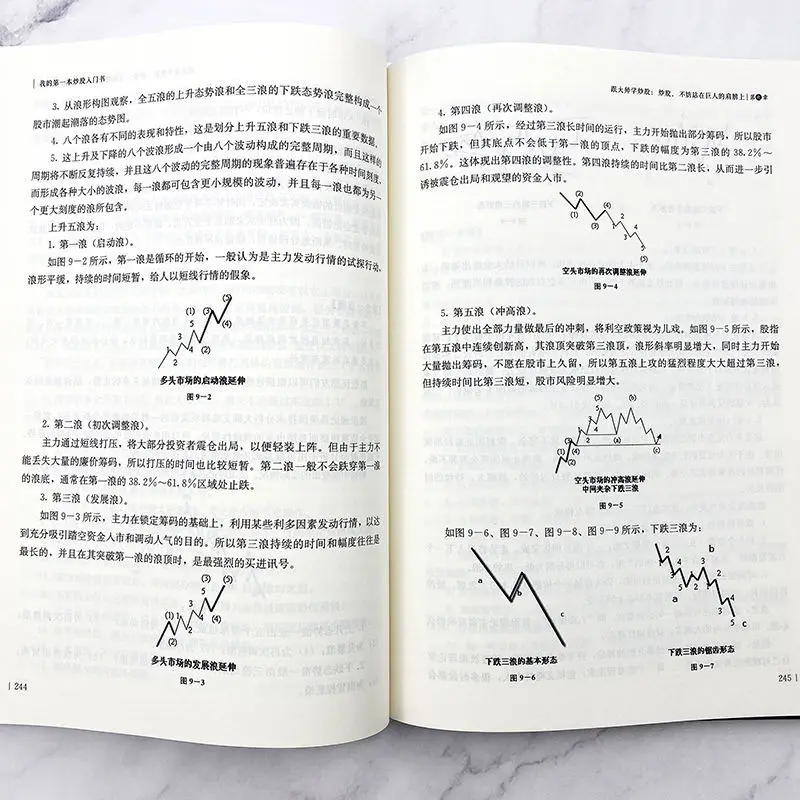 我的第一本炒股入门书
3. 从浪形构图观察，全五浪的上升态势浪和全三浪的下跌态势浪完整构成一个
股市潮起潮落的态势图。
4. 八个浪各有不同的表现和特性，这是划分上升五浪和下跌三浪的重要数据。
5. 这上升及下降的八个波浪形成一个由八个波动构成的完整周期，而且这样的
周期将不断反复持续，并且这八个波动的完整周期的现象普遍存在于各种时间刻度，
而形成各种大小的波浪，每一浪都可包含更小规模的波动，并且每一浪也都为另一
个更大刻度的浪所包含。
上升五浪为：
1. 第一浪（启动浪）。
如图 9－2 所示，第一浪是循环的开始，一般认为是主力发动行情的试探行动，
浪形平缓，持续的时间短暂，给人以短线行情的假象。
(5)
(1) (3)
5
3 (4)
1 (2)
4
2
多头市场的启动浪延伸
图 9－2
2. 第二浪（初次调整浪）。
主力通过短线打压，将大部分投资者震仓出局，以便轻装上阵。但由于主力不
能丢失大量的廉价筹码，所以打压的时间也比较短暂。第二浪一般不会跌穿第一浪
的浪底，通常在第一浪的 38.2%～61.8%区域处止跌。
3. 第三浪（发展浪）。
如图 9－3 所示，主力在锁定筹码的基础上，利用某些利多因素发动行情，以达
到充分吸引踏空资金入市和调动人气的目的。所以第三浪持续的时间和幅度往往是
最长的，并且在其突破第一浪的浪顶时，是最强烈的买进讯号。
(3) (5)
5
3
(1) 1 (4)
4
2
(2)
多头市场的发展浪延伸
图 9－3
244
跟大师学炒股：炒股，不妨站在巨人的肩膀上 第九章
4. 第四浪（再次调整浪）。
如图 9－4 所示，经过第三浪长时间的运行，主力开始抛出部分筹码，所以股市
开始下跌，但其底点不会低于第一浪的顶点，下跌的幅度为第三浪的 38.2%～
61.8%。这体现出第四浪的调整性。第四浪持续的时间比第二浪长，从而进一步引
诱被震仓出局和观望的资金入市。
(2)
(4)
(1) 2
(3) 4
1
3
(5)
空头市场的再次调整浪延伸
图 9－4
5. 第五浪（冲高浪）。
主力使出全部力量做最后的冲刺，将利空政策视为儿戏。如图 9－5 所示，股指
在第五浪中连续创新高，其浪顶突破第三浪顶，浪形斜率明显增大，同时主力开始
大量抛出筹码，不愿在股市上久留，所以第五浪上攻的猛烈程度大大超过第三浪，
但持续时间比第三浪短，股市风险明显增大。
(5)
5 (b)
3
4
1
2
(a) (c)
(1)
(2)
空头市场的冲高浪延伸
中间夹杂下跌三浪
图 9－5
如图 9－6、图 9－7、图 9－8、图 9－9所示，下跌三浪为：
a
b
c
下跌三浪的基本形态
图 9－6
b
2
4
1
3
5
a
2
4
1
3
5
c
下跌三浪的锯齿形态
图 9－7
245